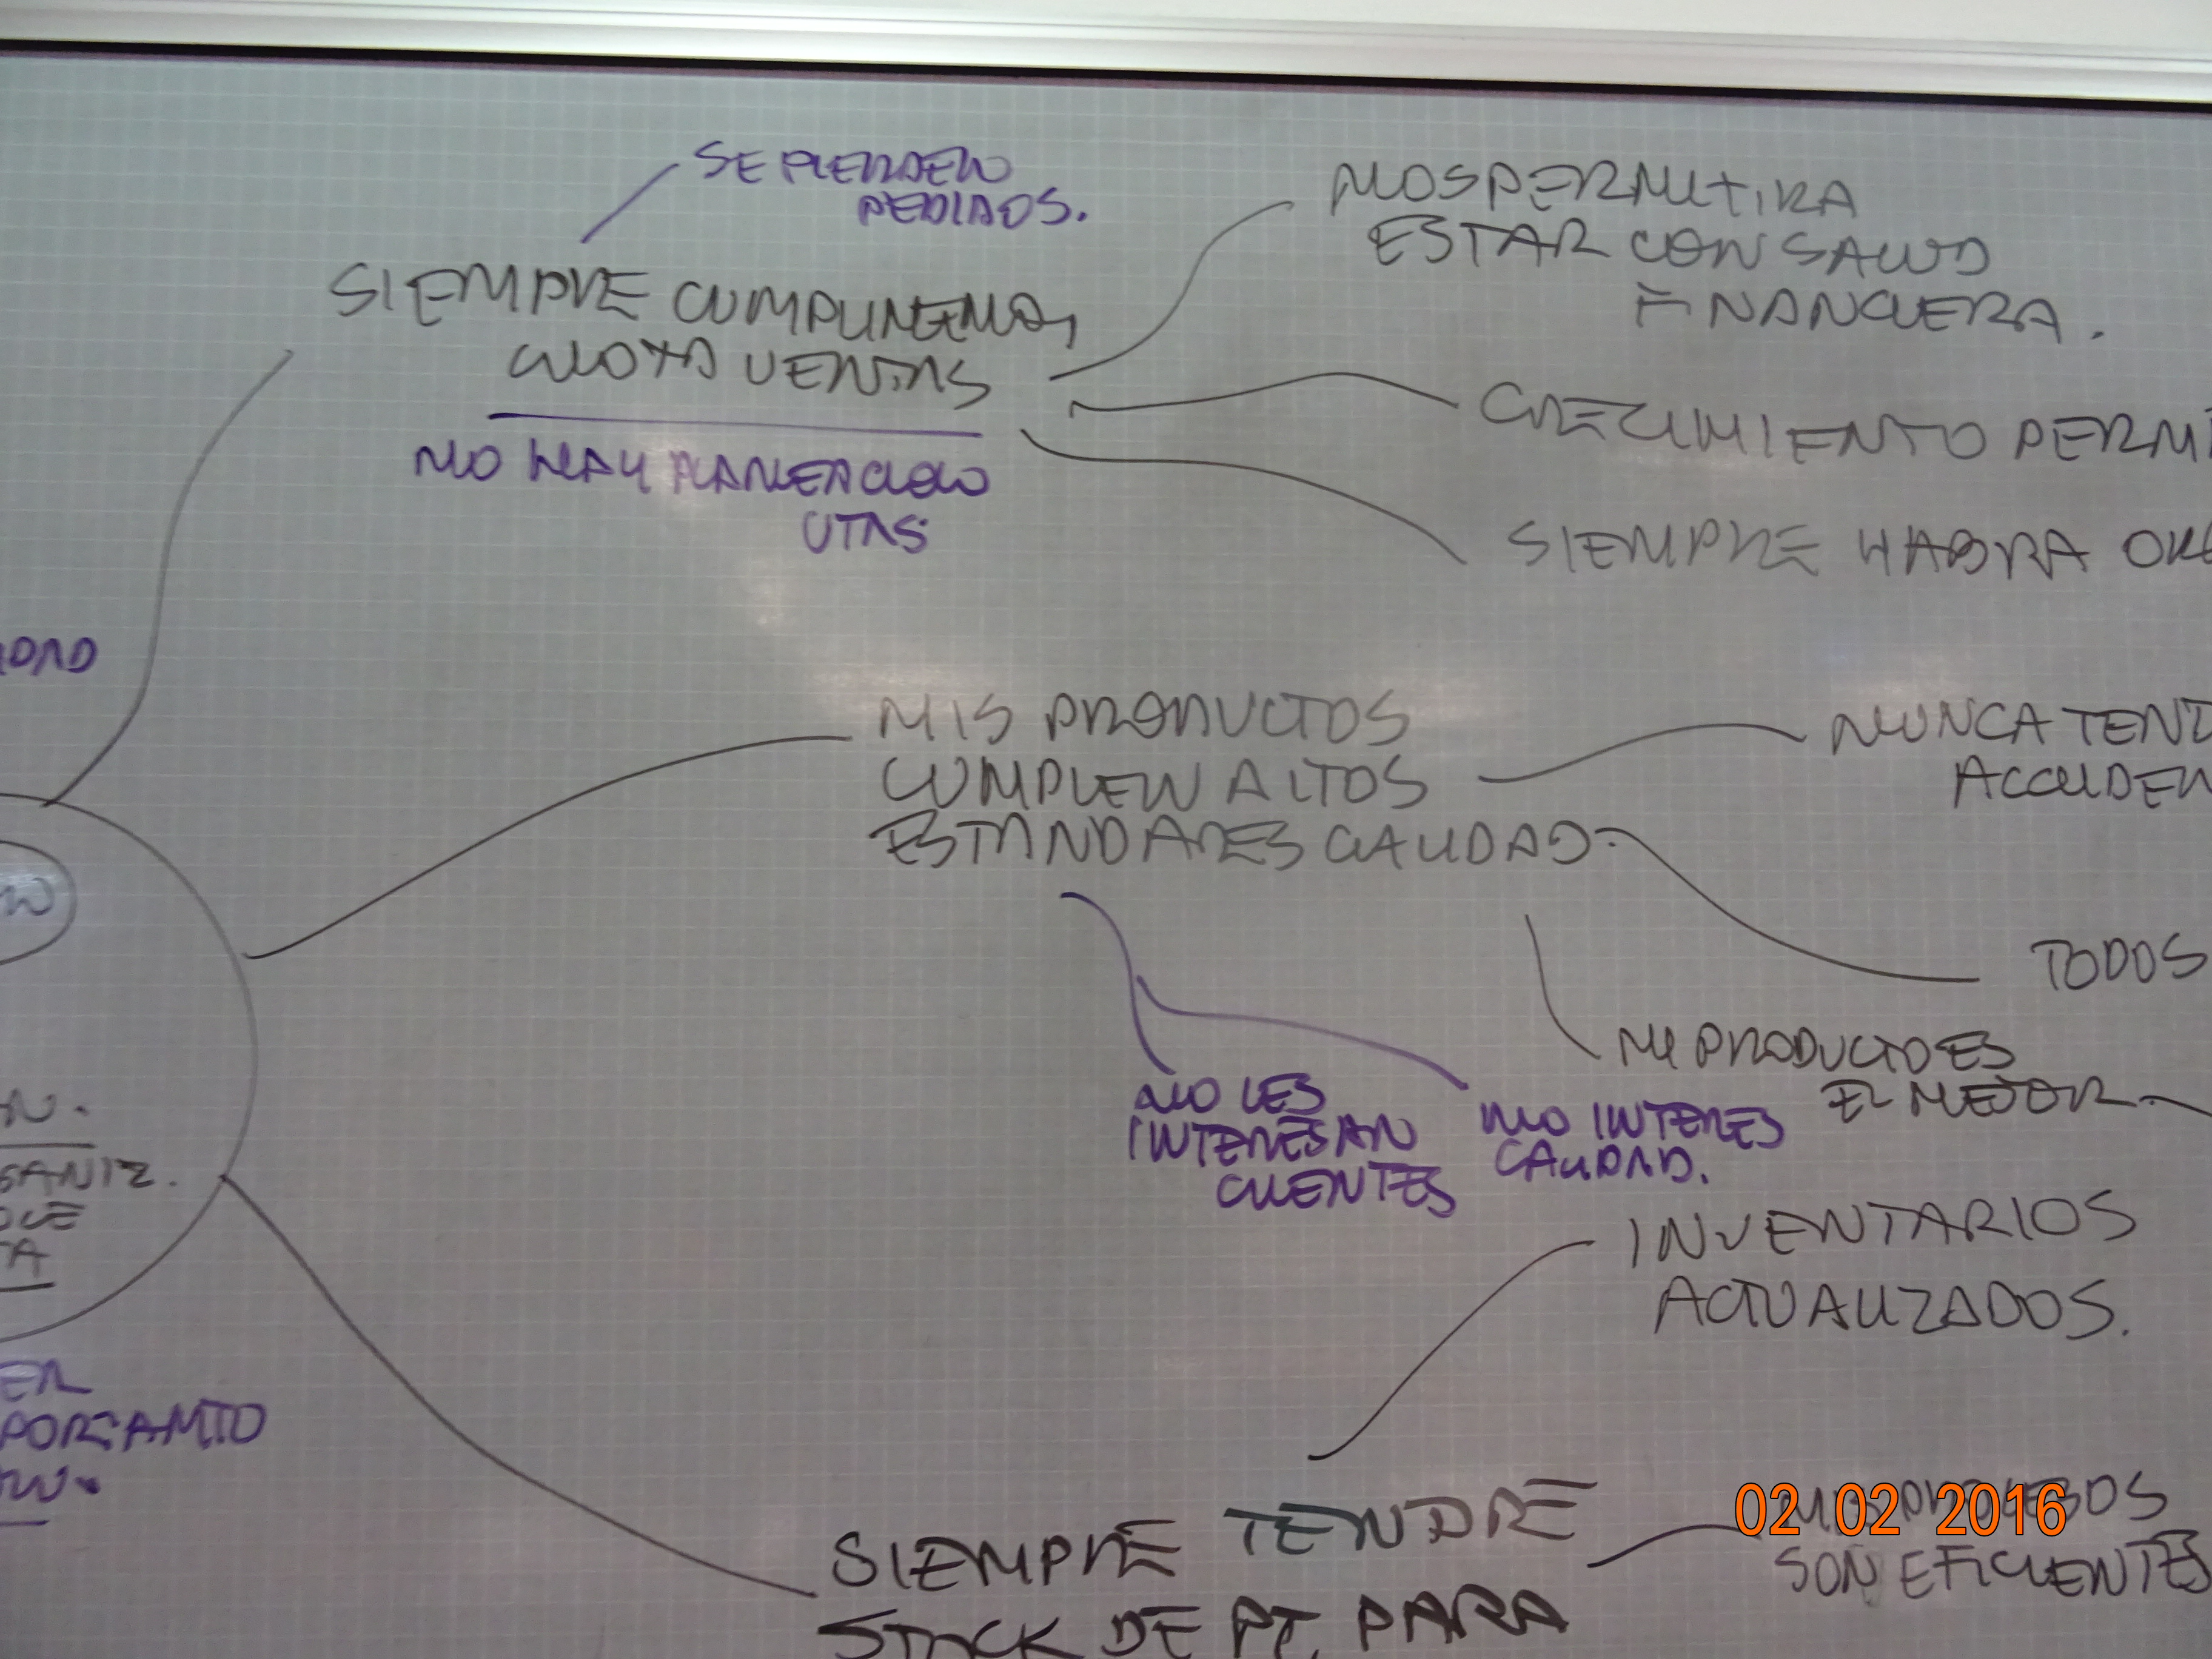 SE PIERDEN
PEDIDOS.
SIEMPRE CUMPLIREMOS
CUOTA VENTAS
NO HAY PLANEACION
VTAS.
NOS PERMITIRA
ESTAR CON SALUD
FINANCIERA.
CRECIMIENTO PERMI
SIEMPRE HABRA
DAD
MIS PRODUCTOS
CUMPLEN ALTOS
ESTANDARES CALIDAD.
NUNCA TEND
ACCIDEN
TODOS
MI PRODUCTO ES
EL MEJOR
NO LES
INTERESAN
CLIENTES
NO INTERES
CALIDAD.
N.
GANIZ.
QUE
TA
ER
PORTAMTO
INVENTARIOS
ACTUALIZADOS.
SIEMPRE TENDRE
STOCK DE PT. PARA
MIS PROCESOS
SON EFICIENTES
02 02 2016